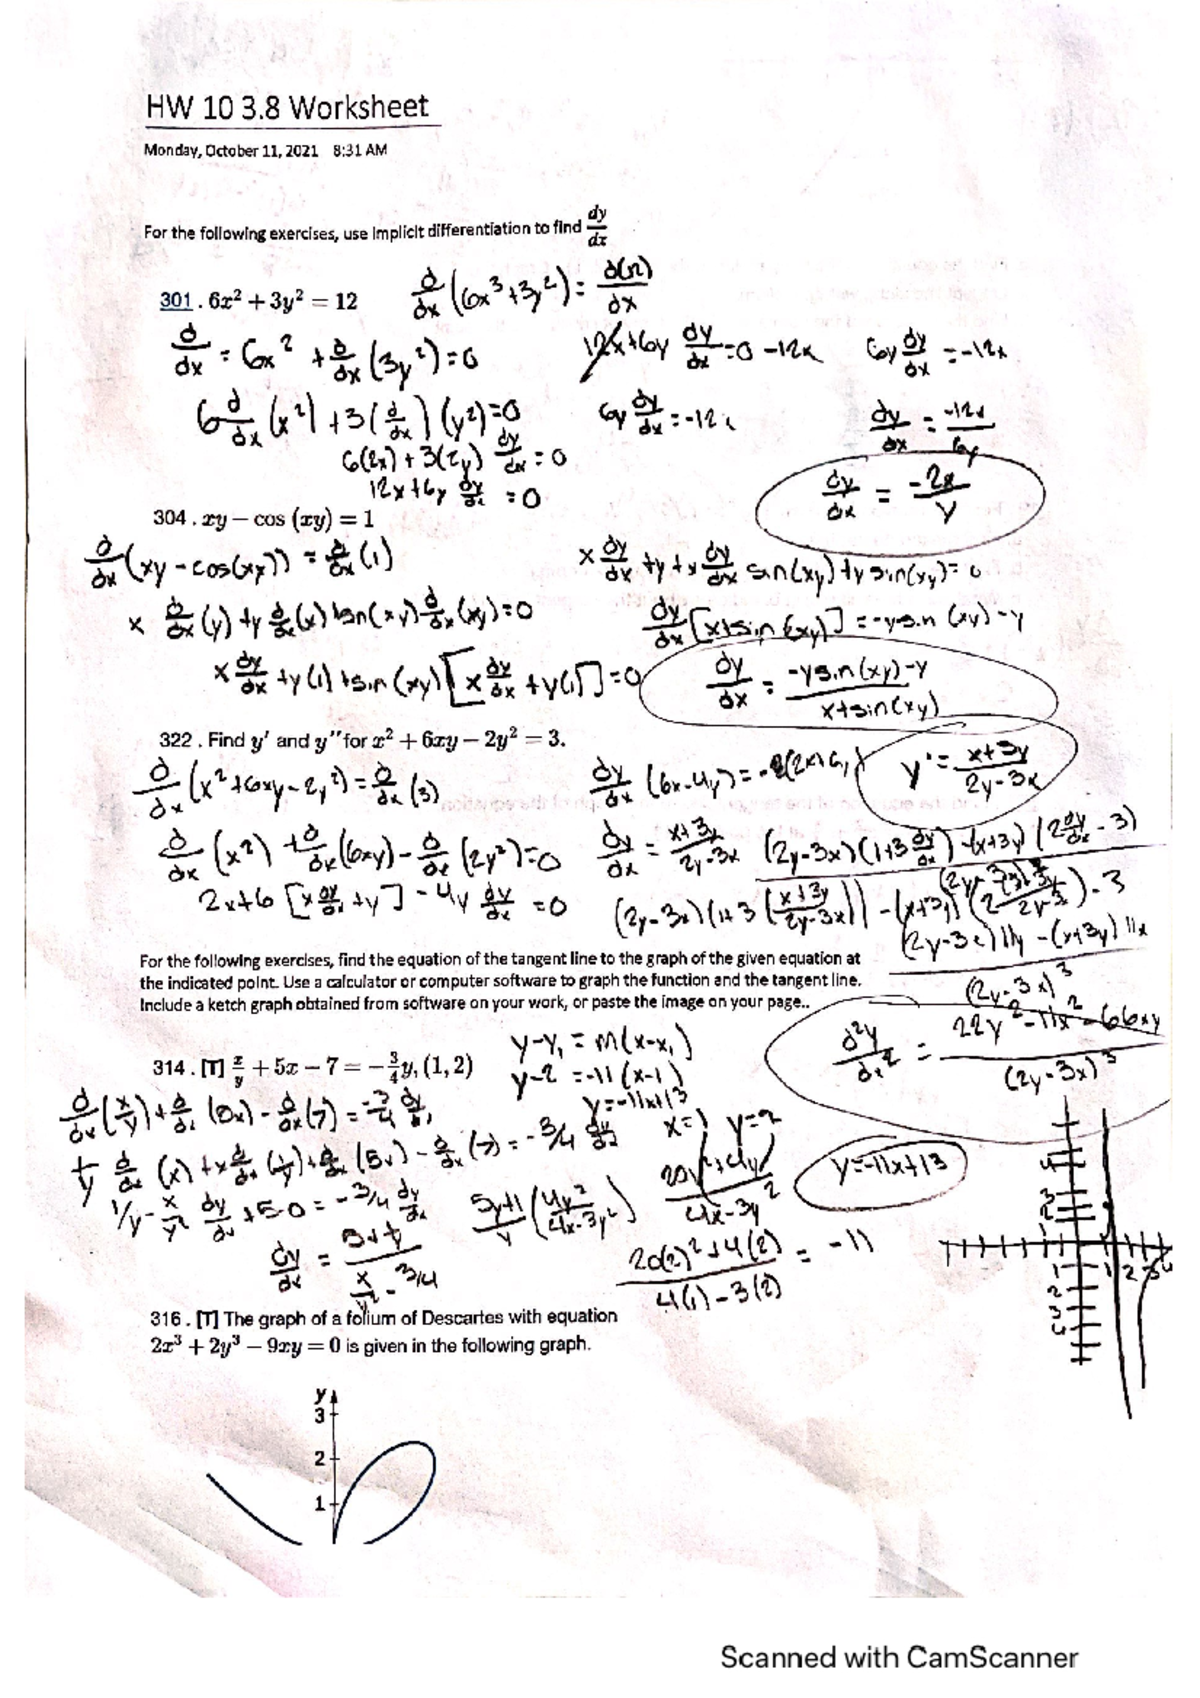 HW 10 3.8 Worksheet
Monday, October 11, 2021 8:31 AM
For the following exercises, use implicit differentiation to find dy/dx
301 . 6x² + 3y² = 12
d/dx (6x³+3y²) = d(12)/dx
d/dx = 6x² + d/dx (3y²) = 0
12x+6y dy/dx = 0 -12x
6y dy/dx = -12x
6 d/dx (x²) + 3(d/dx) (y²) = 0
6y dy/dx = -12x
dy/dx = -12x/6y
6(2x) + 3(2y) dy/dx = 0
12x+6y dy/dx = 0
dy/dx = -2x/y
304 . xy − cos (xy) = 1
d/dx (xy - cos(xy)) = d/dx (1)
x dy/dx + y + x dy/dx sin(xy) + y sin(xy) = 0
x d/dx (y) + y d/dx (x) + sin(xy) d/dx (xy) = 0
dy/dx [x+sin(xy)] = -y sin(xy) - y
x dy/dx + y(1) + sin(xy) [x dy/dx + y(1)] = 0
dy/dx = -y sin(xy) - y / x+sin(xy)
322 . Find y′ and y″ for x² + 6xy − 2y² = 3.
d/dx (x²+6xy-2y²) = d/dx (3)
dy/dx (6x-4y) =
y' = x+3y / 2y-3x
d/dx (x²) + d/dx (6xy) - d/dx (2y²) = 0
dy/dx = x+3y / 2y-3x
(2y-3x)(1+3 dy/dx) - (x+3y)(2 dy/dx - 3)
2x+6 [x dy/dx + y] - 4y dy/dx = 0
(2y-3x)(1+3(x+3y / 2y-3x)) - (x+3y)
(2y-3x) 11y - (x+3y) 11x
(2y-3x)³
d²y/dx² = 22y² - 11x² - 66xy / (2y-3x)³
For the following exercises, find the equation of the tangent line to the graph of the given equation at
the indicated point. Use a calculator or computer software to graph the function and the tangent line.
Include a ketch graph obtained from software on your work, or paste the image on your page..
314 . [T] x/y + 5x − 7 = −3/4 y, (1, 2)
y-y₁ = m(x-x₁)
y-2 = -11(x-1)
y=-11x+13
d/dx (x/y) + d/dx (5x) - d/dx (7) = -3/4 dy/dx
x=1 y=2
1/y d/dx (x) + x d/dx (1/y) + d/dx (5x) - d/dx (7) = -3/4 dy/dx
y=-11x+13
1/y - x/y² dy/dx + 5-0 = -3/4 dy/dx
5y+1/y (4y² / 4x-3y²)
20y²+4y / 4x-3y²
dy/dx = 5+1/y / x/y² - 3/4
20(2)²+4(2) / 4(1)-3(2) = -11
316 . [T] The graph of a folium of Descartes with equation
2x³ + 2y³ − 9xy = 0 is given in the following graph.
y
3
2
1
Scanned with CamScanner